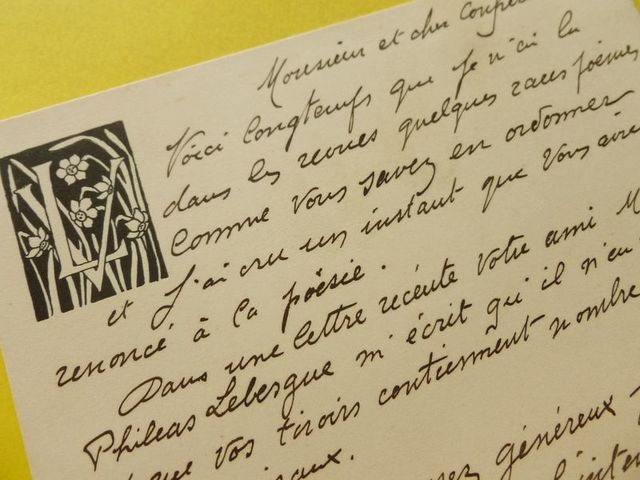 Monsieur et cher
LV
Voici longtemps que je n'ai lu
dans les revues quelques rares poèmes
comme vous savez en ordonner
et j'ai cru un instant que vous
renoncé à la poésie.
Dans une lettre récente votre ami M
Phileas Lebesgue m'écrit qu'il n'en
que vos tiroirs contiennent nombre
généreux